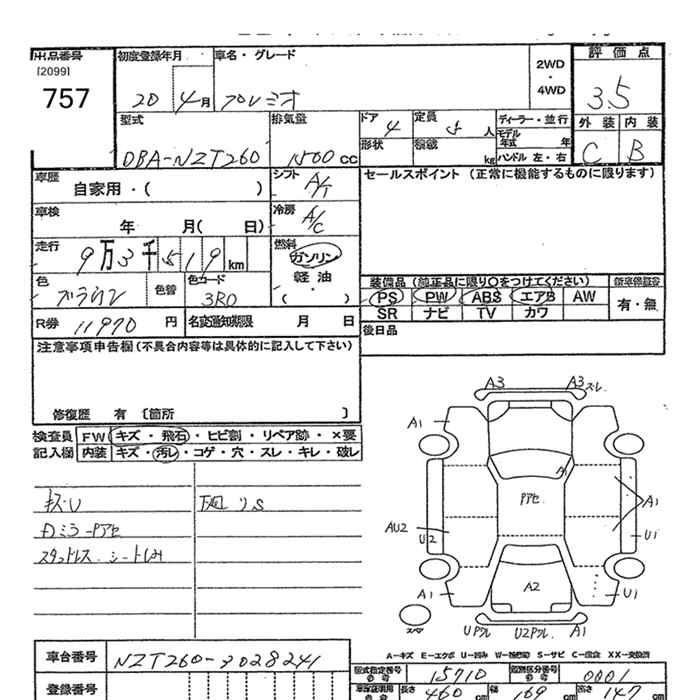 出品番号 初度登録年月 車名・グレード 2WD ・ 4WD 評価点
[2099]
757
20 4月 プレミオ 3.5
型式 排気量 ドア 4 定員 5 人 ディーラー・並行 外装 内装
DBA-NZT260 1500 cc 形状 積載 kg モデル年式 年 C B
ハンドル 左・右
車歴 自家用・( ) シフト A/T セールスポイント (正常に機能するものに限ります)
車検 年 月( 日) 冷房 A/C
走行 9万3千519 km 燃料 ガソリン 軽油 ・ ( )
色 ブラウン 色替 色コード 3R0 装備品 (純正品に限り○をつけてください) 新車保証書
PS PW ABS エアB AW 有・無
SR ナビ TV カワ
R券 11970 円 名変通知期限 月 日 後日品
注意事項申告欄(不具合内容等は具体的に記入して下さい)
修復歴 有 〔箇所 〕
検査員 FW キズ・飛石・ヒビ割・リペア跡・×要
記入欄 内装 キズ・汚レ・コゲ・穴・スレ・キレ・破レ
キズ・U 下廻リS
ミラーPアセ
スタッドレス シートしみ
A3 A3 スレ
A1 A1
A1
Pアセ
A1
AU2 U2 U1
A2
A1 U1
スペア Uワレ U2Pワレ A1
A―キズ E―エクボ U―凹み W―補修跡 S―サビ C―腐食 XX―交換済
車台番号 NZT260-3028241 型式指定番号 15710 類別区分番号 0001
登録番号 長さ 460 cm 幅 169 cm 高さ 147 cm